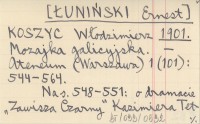 [ŁUNIŃSKI Ernest]
KOSZYC Włodzimierz 1901.
Mozajka galicyjska. —
Ateneum (Warszawa) 1 (101):
544-564.
Na s. 548-551: o dramacie
„Zawisza Czarny" Kazimierza Tet